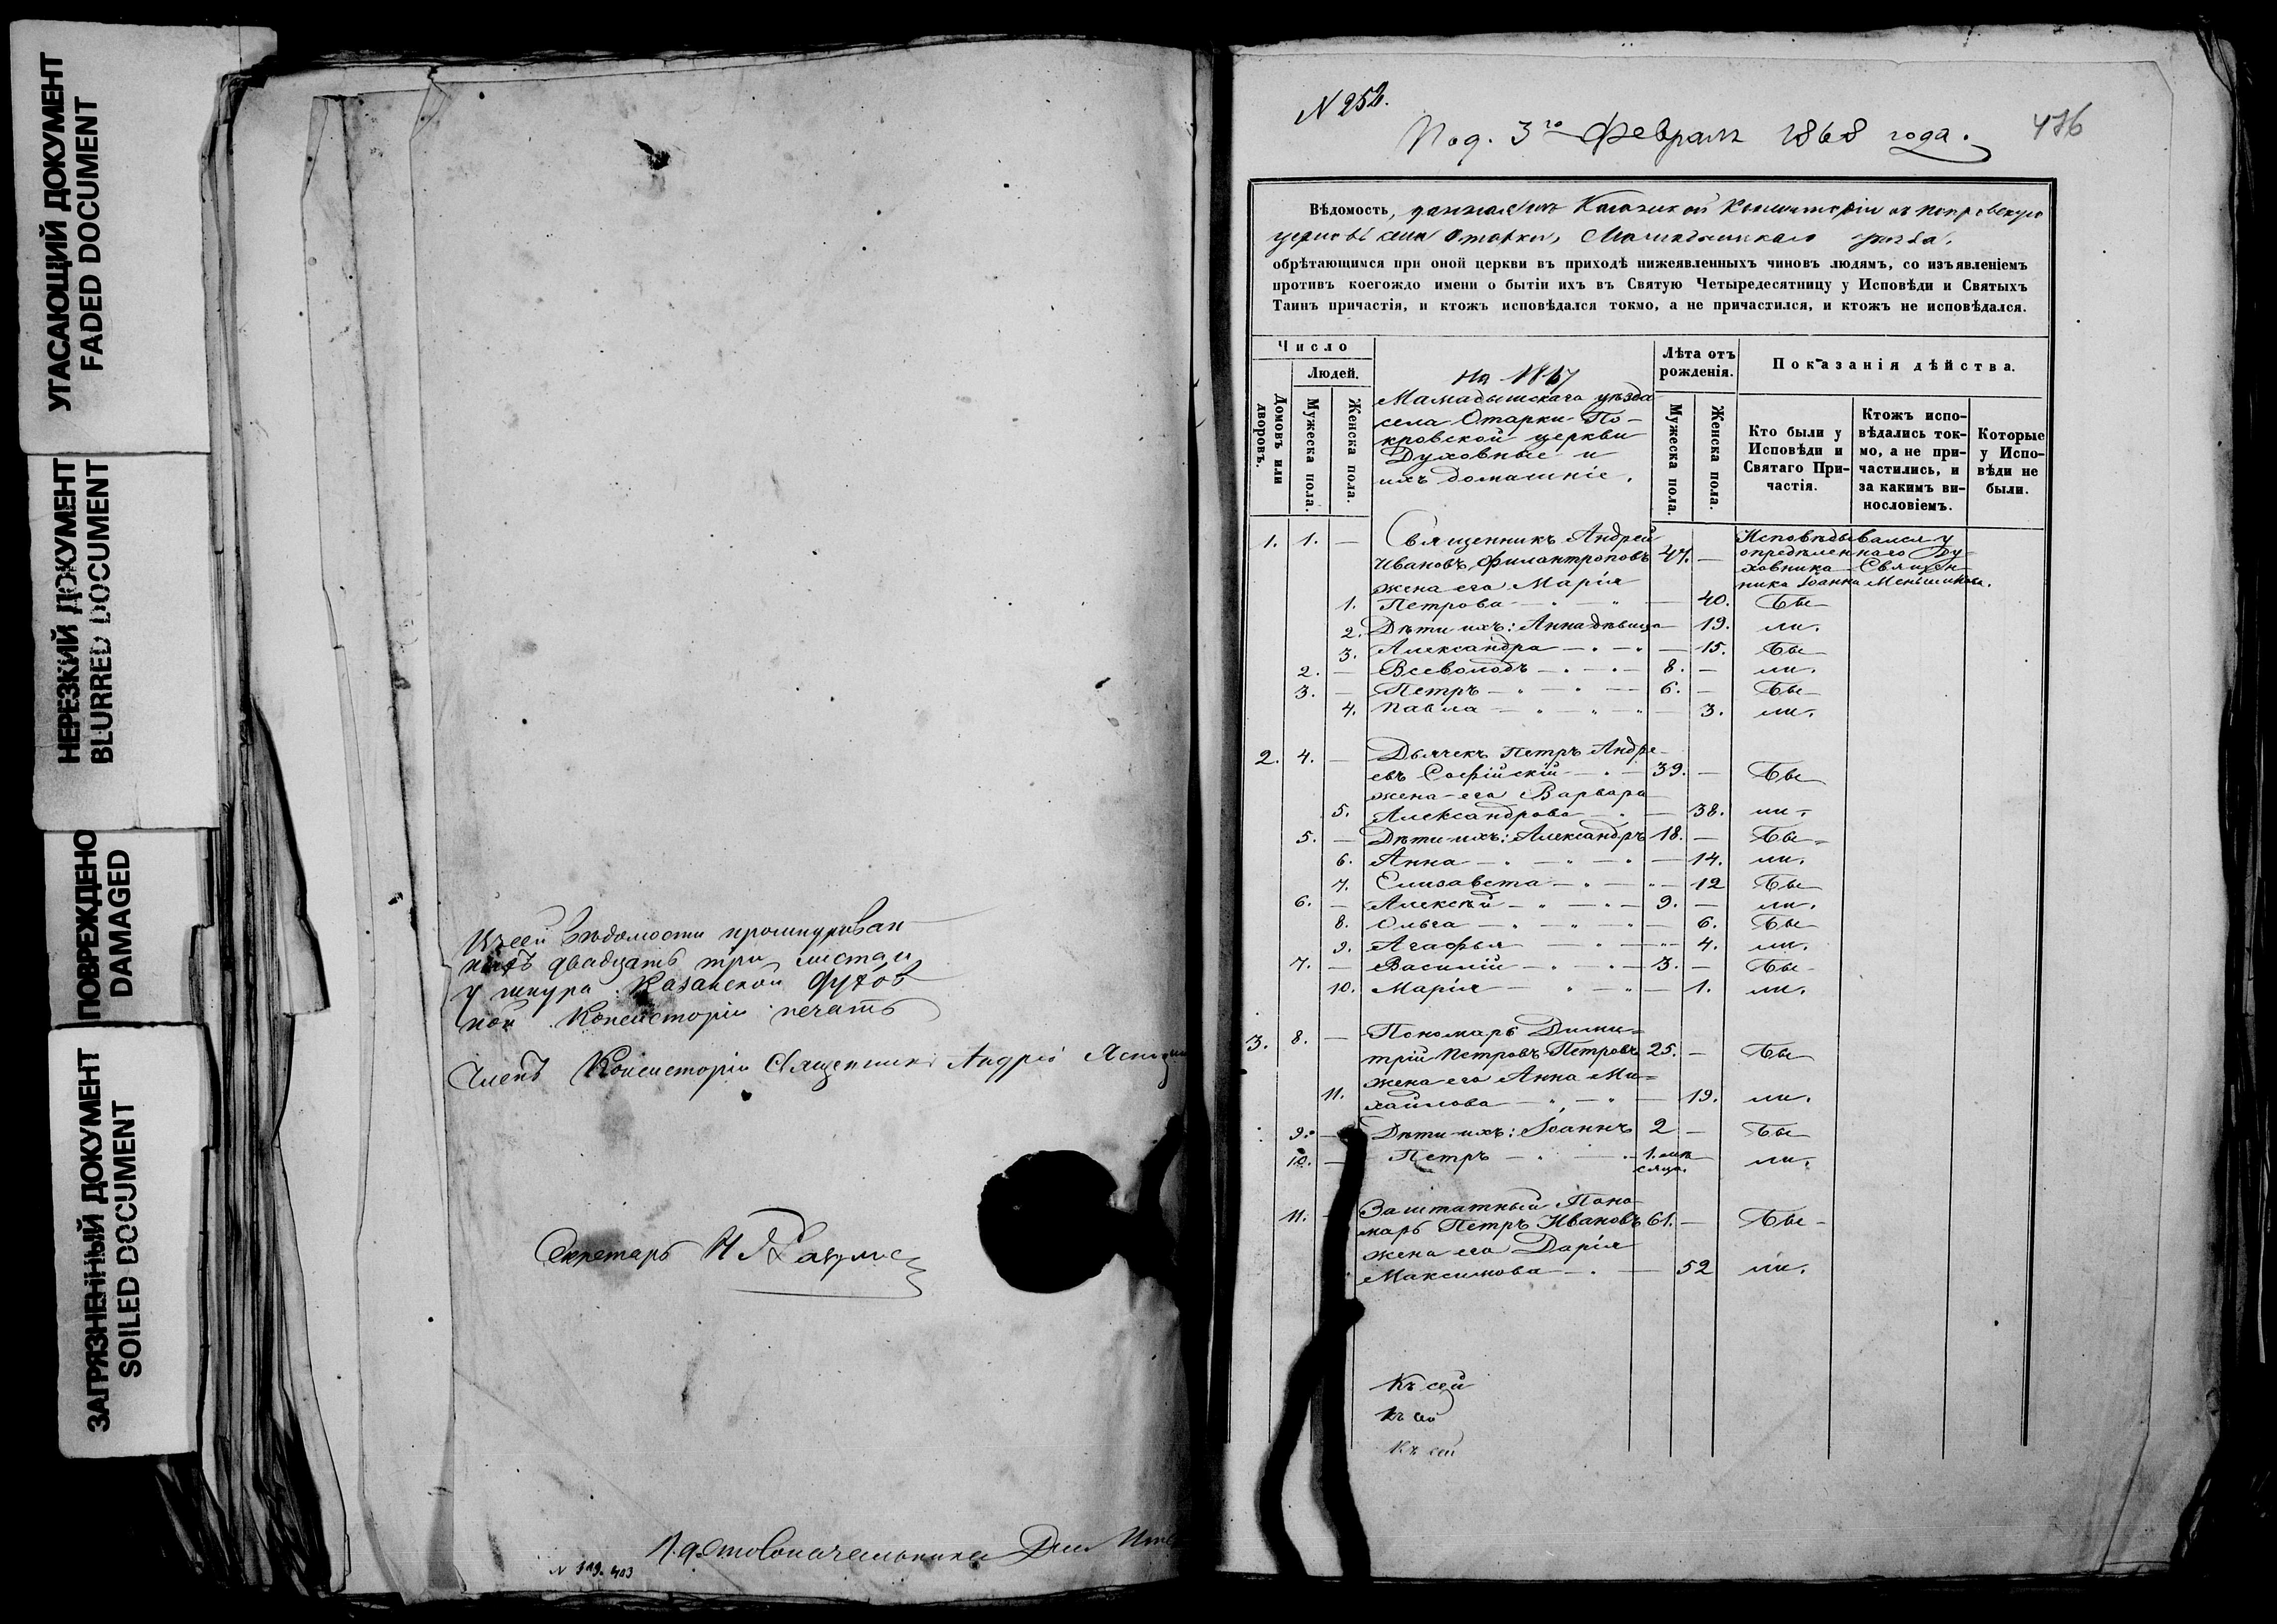 УГАСАЮЩИЙ ДОКУМЕНТ
FADED DOCUMENT
НЕРЕЗКИЙ ДОКУМЕНТ
BLURRED DOCUMENT
ПОВРЕЖДЕНО
DAMAGED
ЗАГРЯЗНЕННЫЙ ДОКУМЕНТ
SOILED DOCUMENT
Въ сей вѣдомости прошнурован
ныхъ двадцать три листа и
у шнура Казанской Духов
ной Консисторіи печать
Членъ Консисторіи Священникъ Андрей
Секретарь
N 319. 403
N 252.
Под. 3го Февраля 1868 года.
476
Вѣдомость, данная изъ Казанской Консисторіи въ Покровскую
церковь села Отарки, Мамадышскаго уѣзда,
обрѣтающимся при оной церкви въ приходѣ нижеявленныхъ чиновъ людямъ, со изъявленіемъ
противъ коегождо имени о бытіи ихъ въ Святую Четыредесятницу у Исповѣди и Святыхъ
Таинъ причастія, и ктожъ исповѣдался токмо, а не причастился, и ктожъ не исповѣдался.
Число
Людей.
Домовъ или дворовъ.
Мужеска пола.
Женска пола.
На 1867
Мамадышскаго уѣзда
села Отарки По-
кровской церкви
Духовные и
ихъ домашніе.
Лѣта отъ рожденія.
Мужеска пола.
Женска пола.
Показанія дѣйства.
Кто были у Исповѣди и Святаго При-частія.
Ктожъ испо-вѣдались ток-мо, а не при-частились, и за какимъ ви-нословіемъ.
Которые у Испо-вѣди не были.
1. 1. — Священникъ Андрей
Ивановъ Филантроповъ 47. —
Исповѣдывался у
опредѣленнаго Ду-
ховника Священ-
ника Іоанна Меньшикова.
жена его Марія
1. Петрова — 40. Бы-
2. Дѣти ихъ: Анна дѣвица — 19. ли.
3. Александра — 15. Бы-
2. — Всеволодъ — 8. — ли.
3. — Петръ — 6. — Бы-
4. Павла — 3. ли.
2. 4. — Дьячекъ Петръ Андре-
евъ Софійскій — 39. — Бы-
жена его Варвара
5. Александрова — 38. ли-
5. — Дѣти ихъ: Александръ 18. — Бы-
6. Анна — 14. ли.
7. Елизавета — 12 Бы-
6. — Алексѣй — 9. — ли.
8. Ольга — 6. Бы-
9. Агафья — 4. ли.
7. — Василій — 3. — Бы-
10. Марія — 1. ли.
3. 8. — Пономарь Дими-
трій Петровъ Петровъ 25. — Бы-
жена его Анна Ми-
11. хайлова — 19. ли.
9. — Дѣти ихъ: Іоаннъ 2 — Бы-
10. — Петръ — 1. мѣ-
сяца. ли.
11. — Заштатный Поно-
марь Петръ Ивановъ 61. — Бы-
жена его Дарія
Максимова — 52 ли.
Къ сей
Къ сей
Къ сей